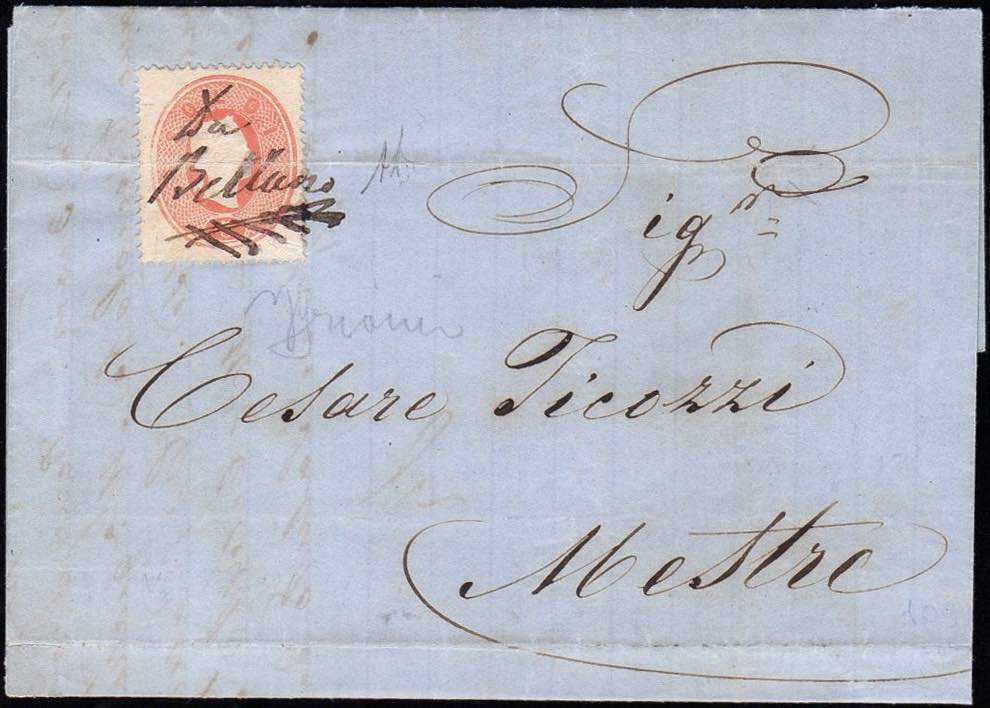 Da
Bellano
Sig.r
Cesare Ticozzi
Mestre